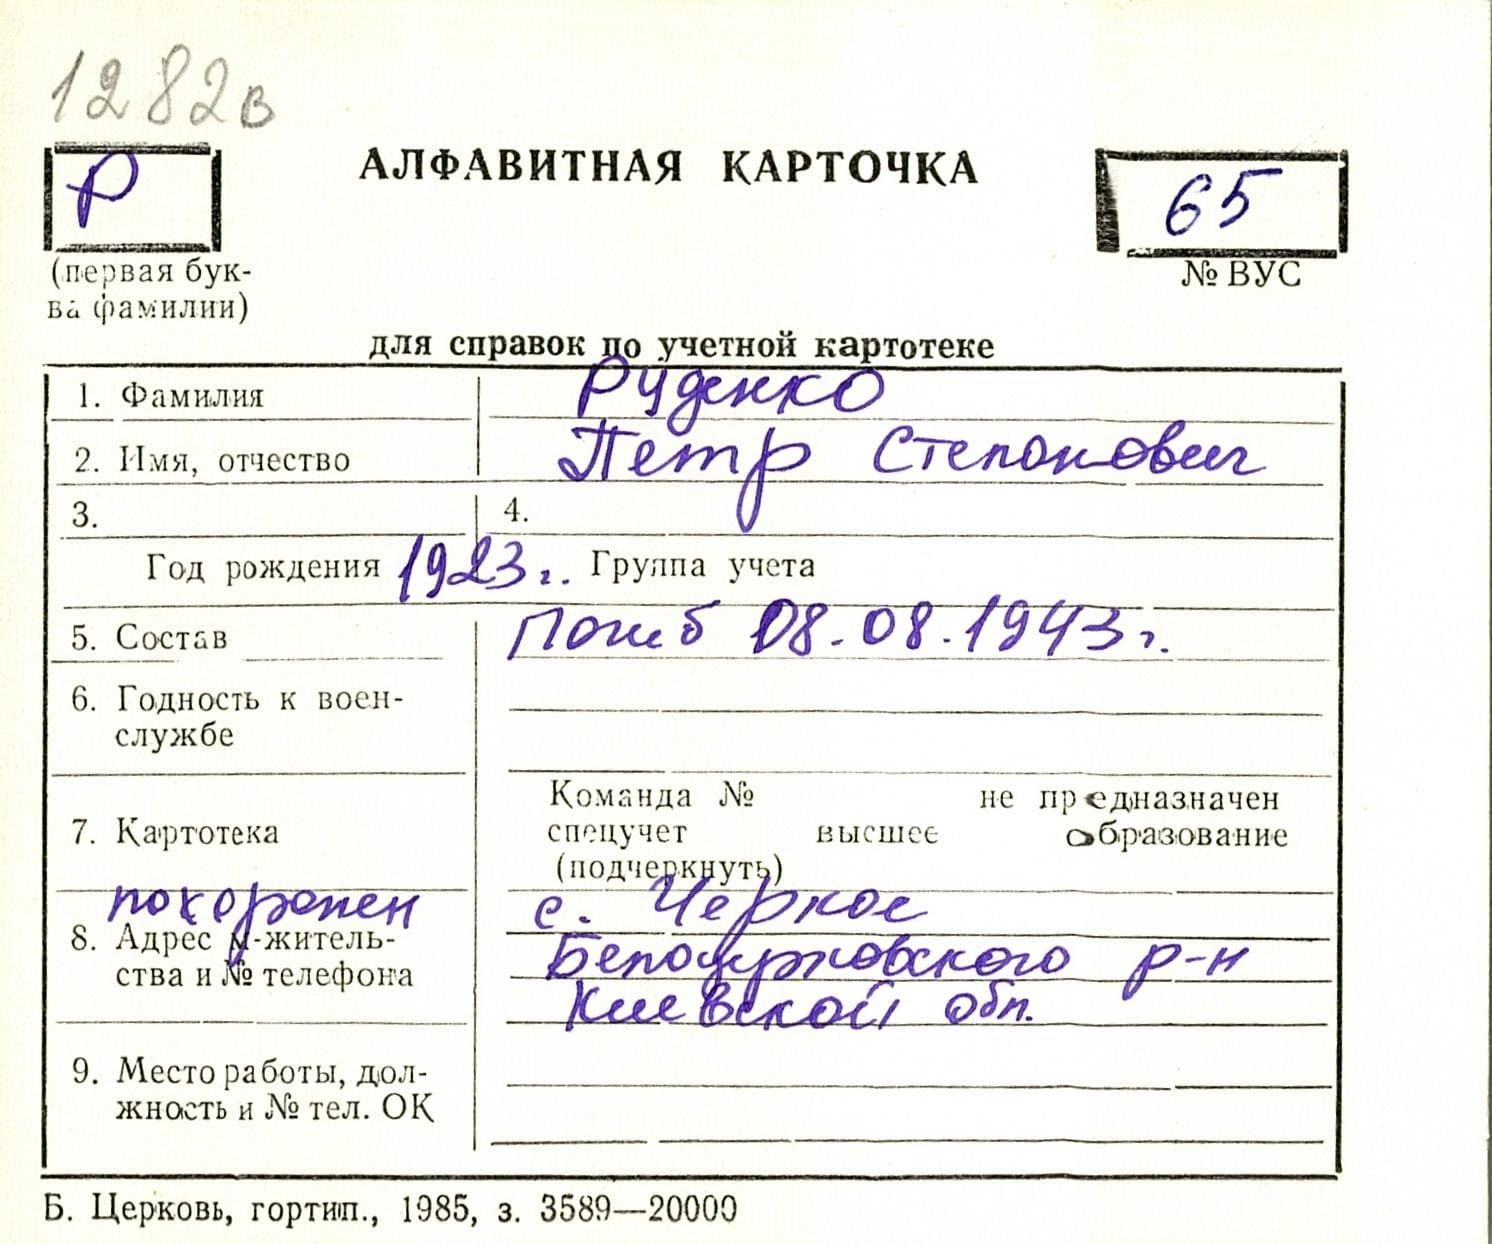 1282в
Р
АЛФАВИТНАЯ КАРТОЧКА
65
(первая бук-
ва фамилии)
№ ВУС
для справок по учетной картотеке
1. Фамилия Руденко
2. Имя, отчество Петр Степанович
3. 4.
Год рождения 1923 г. Группа учета
5. Состав Погиб 08.08.1943 г.
6. Годность к воен-
службе
Команда № не предназначен
7. Картотека спецучет высшее образование
(подчеркнуть)
похоронен с. Черкас
8. Адрес м-житель- Белоцерковского р-н
ства и № телефона Киевской обл.
9. Место работы, дол-
жность и № тел. ОК
Б. Церковь, гортип., 1985, з. 3589—20000